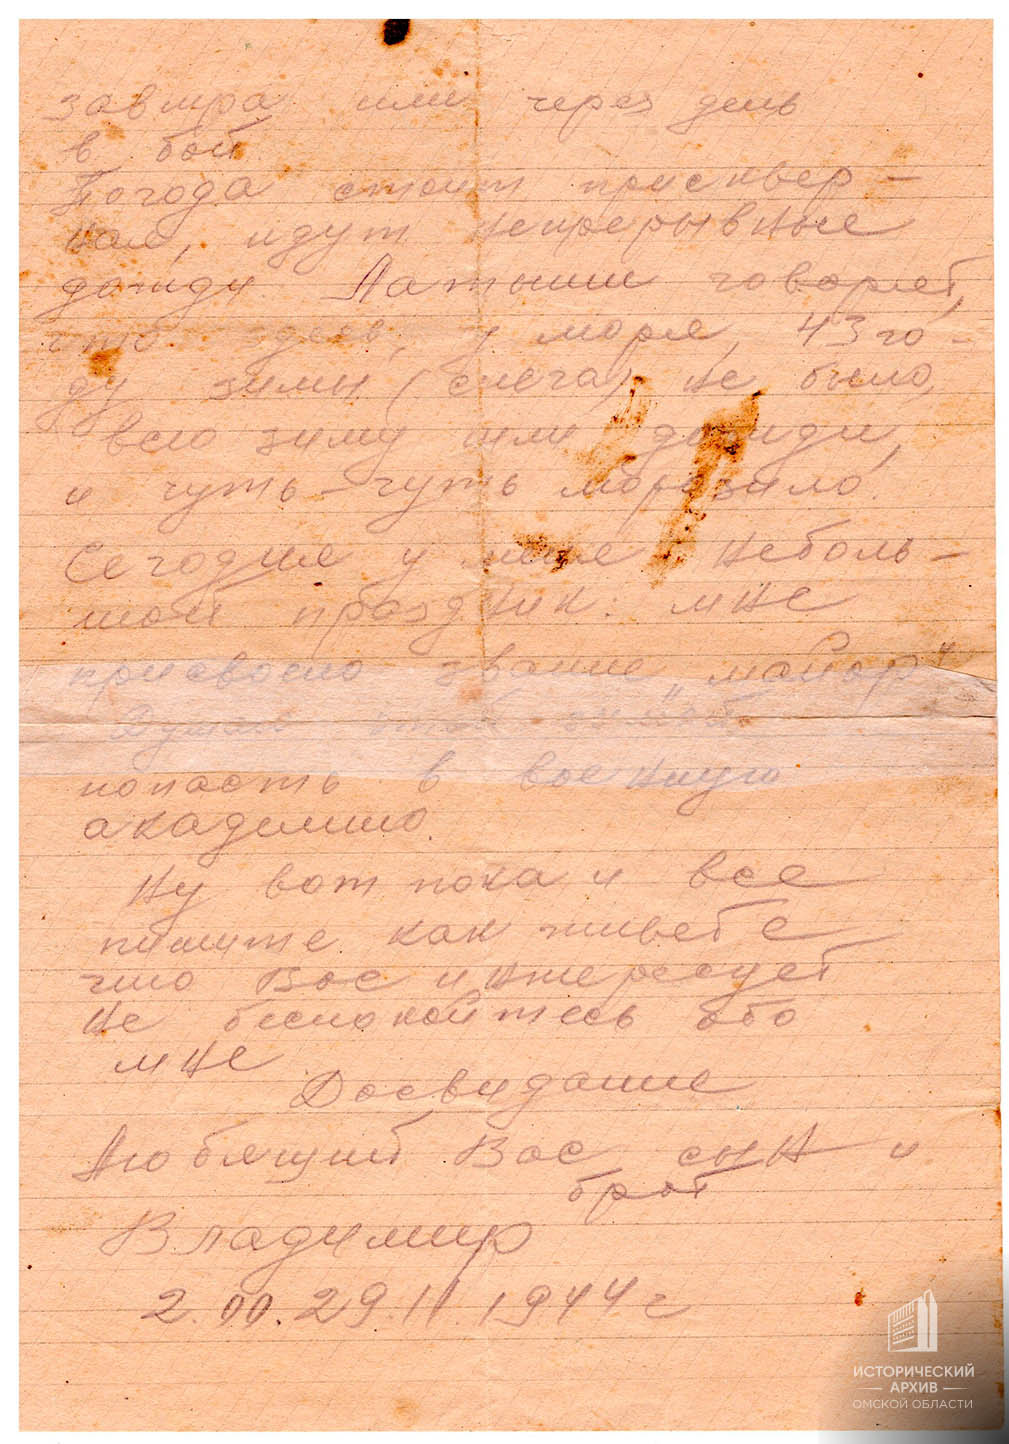 завтра или через день
в бой.
Погода стоит присквер-
ная, идут непрерывные
дожди Латыши говорят,
что здесь, у моря, 43 го-
ду зимы (снега) не было,
всю зиму шли дожди,
и чуть-чуть морозило.
Сегодня у меня неболь-
шой праздник: мне
присвоено звание „майор"
Думаю этой зимой
попасть в военную
академию.
Ну вот пока и все
пишите как живете
что Вас интересует
не беспокойтесь обо
мне
Досвидание
Любящий Вас сын и
брат
Владимир
2.00.29.11.1944 г
ИСТОРИЧЕСКИЙ
АРХИВ
ОМСКОЙ ОБЛАСТИ